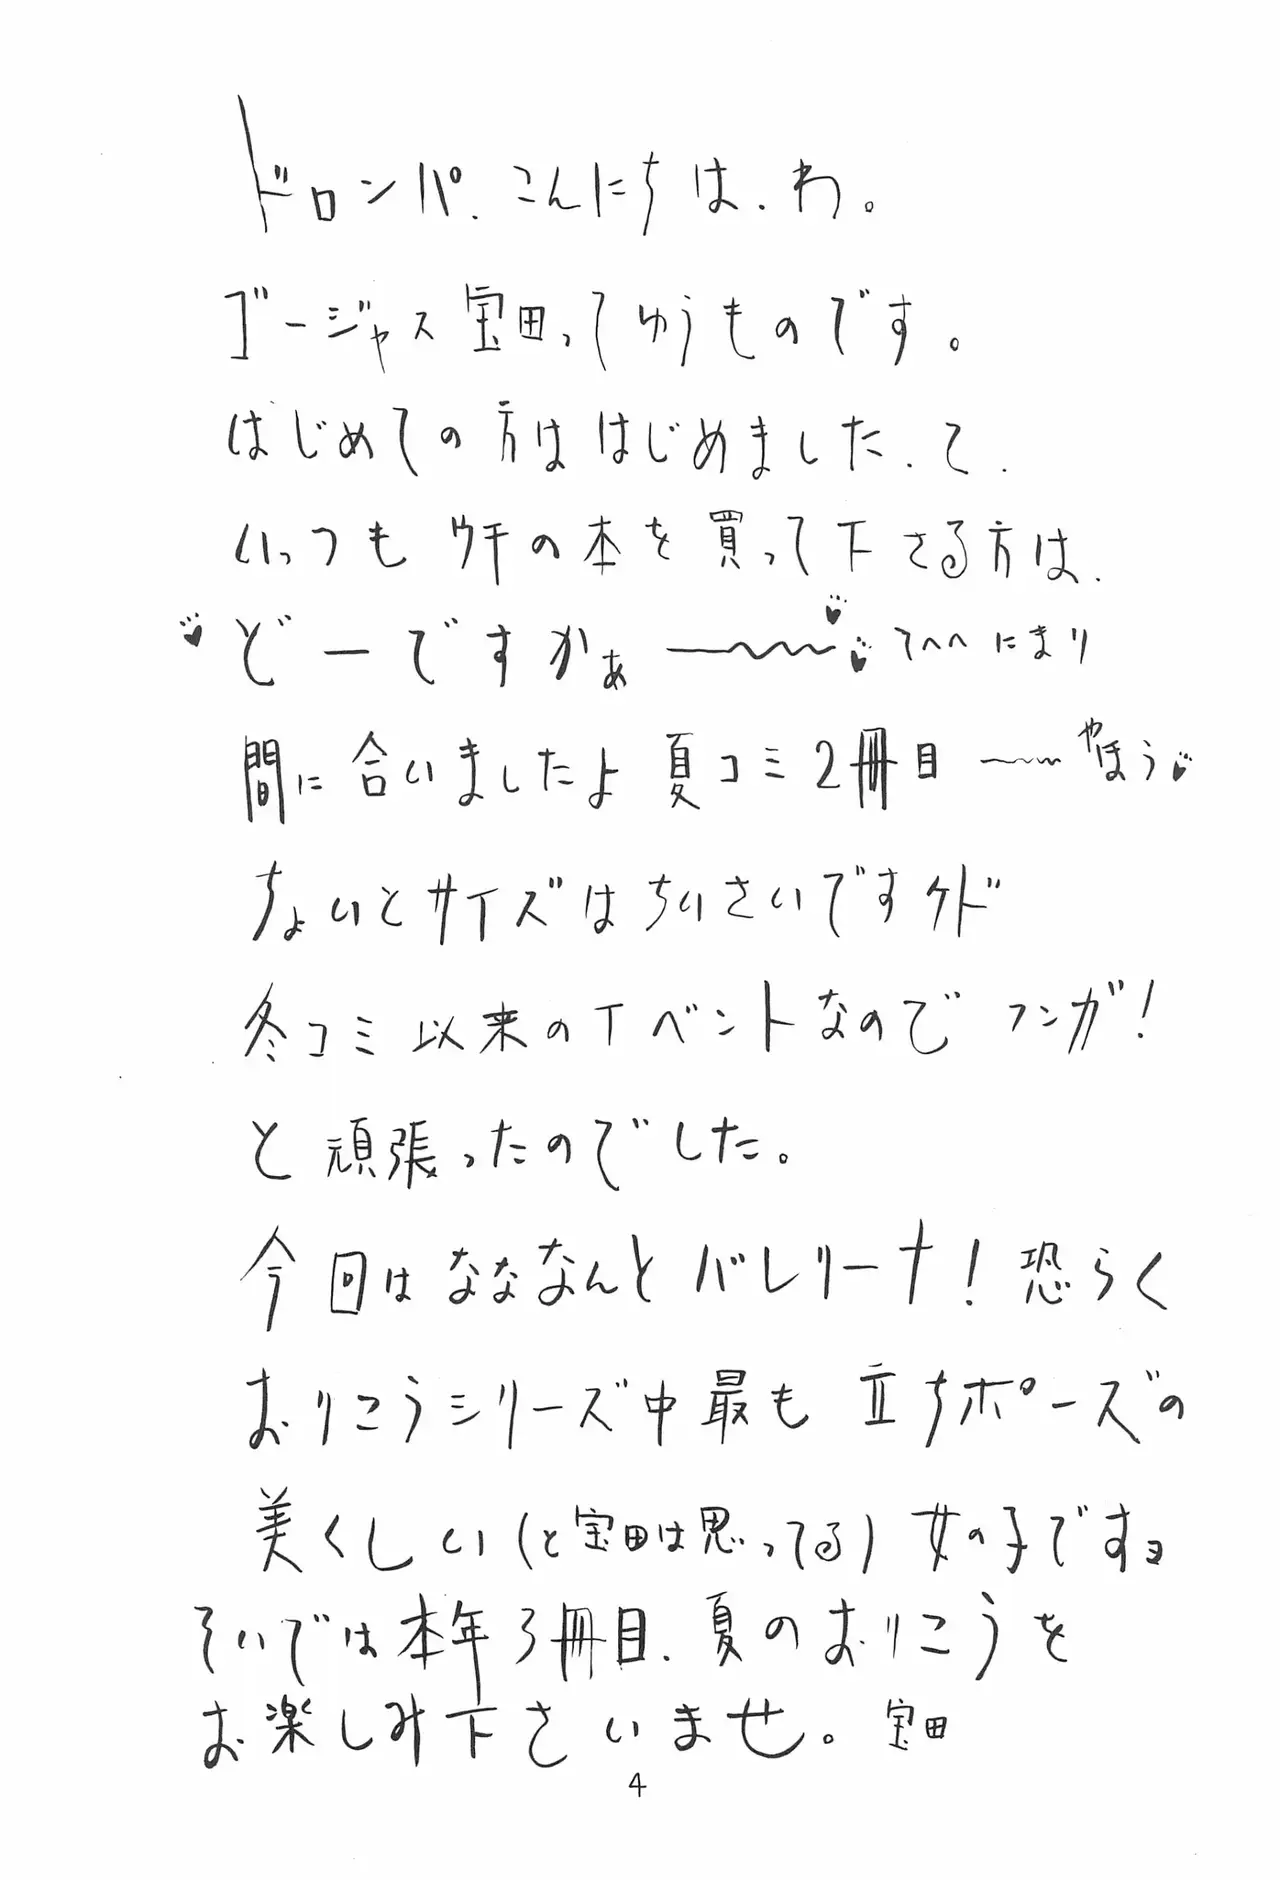 ドロンパ.こんにちは.わ。
ゴージャス宝田ってゆうものです。
はじめての方ははじめました.て.
いっつもウチの本を買って下さる方は.
どーですかぁ〜〜〜 てへへ にまり
間に合いましたよ 夏コミ2冊目〜〜 やほう
ちょいとサイズはちいさいですケド
冬コミ以来のイベントなので フンガ!
と頑張ったのでした。
今回はなななんとバレリーナ!恐らく
おりこうシリーズ中最も立ちポーズの
美くしい(と宝田は思ってる)女の子ですョ
そいでは本年3冊目.夏のおりこうを
お楽しみ下さいませ。宝田
4